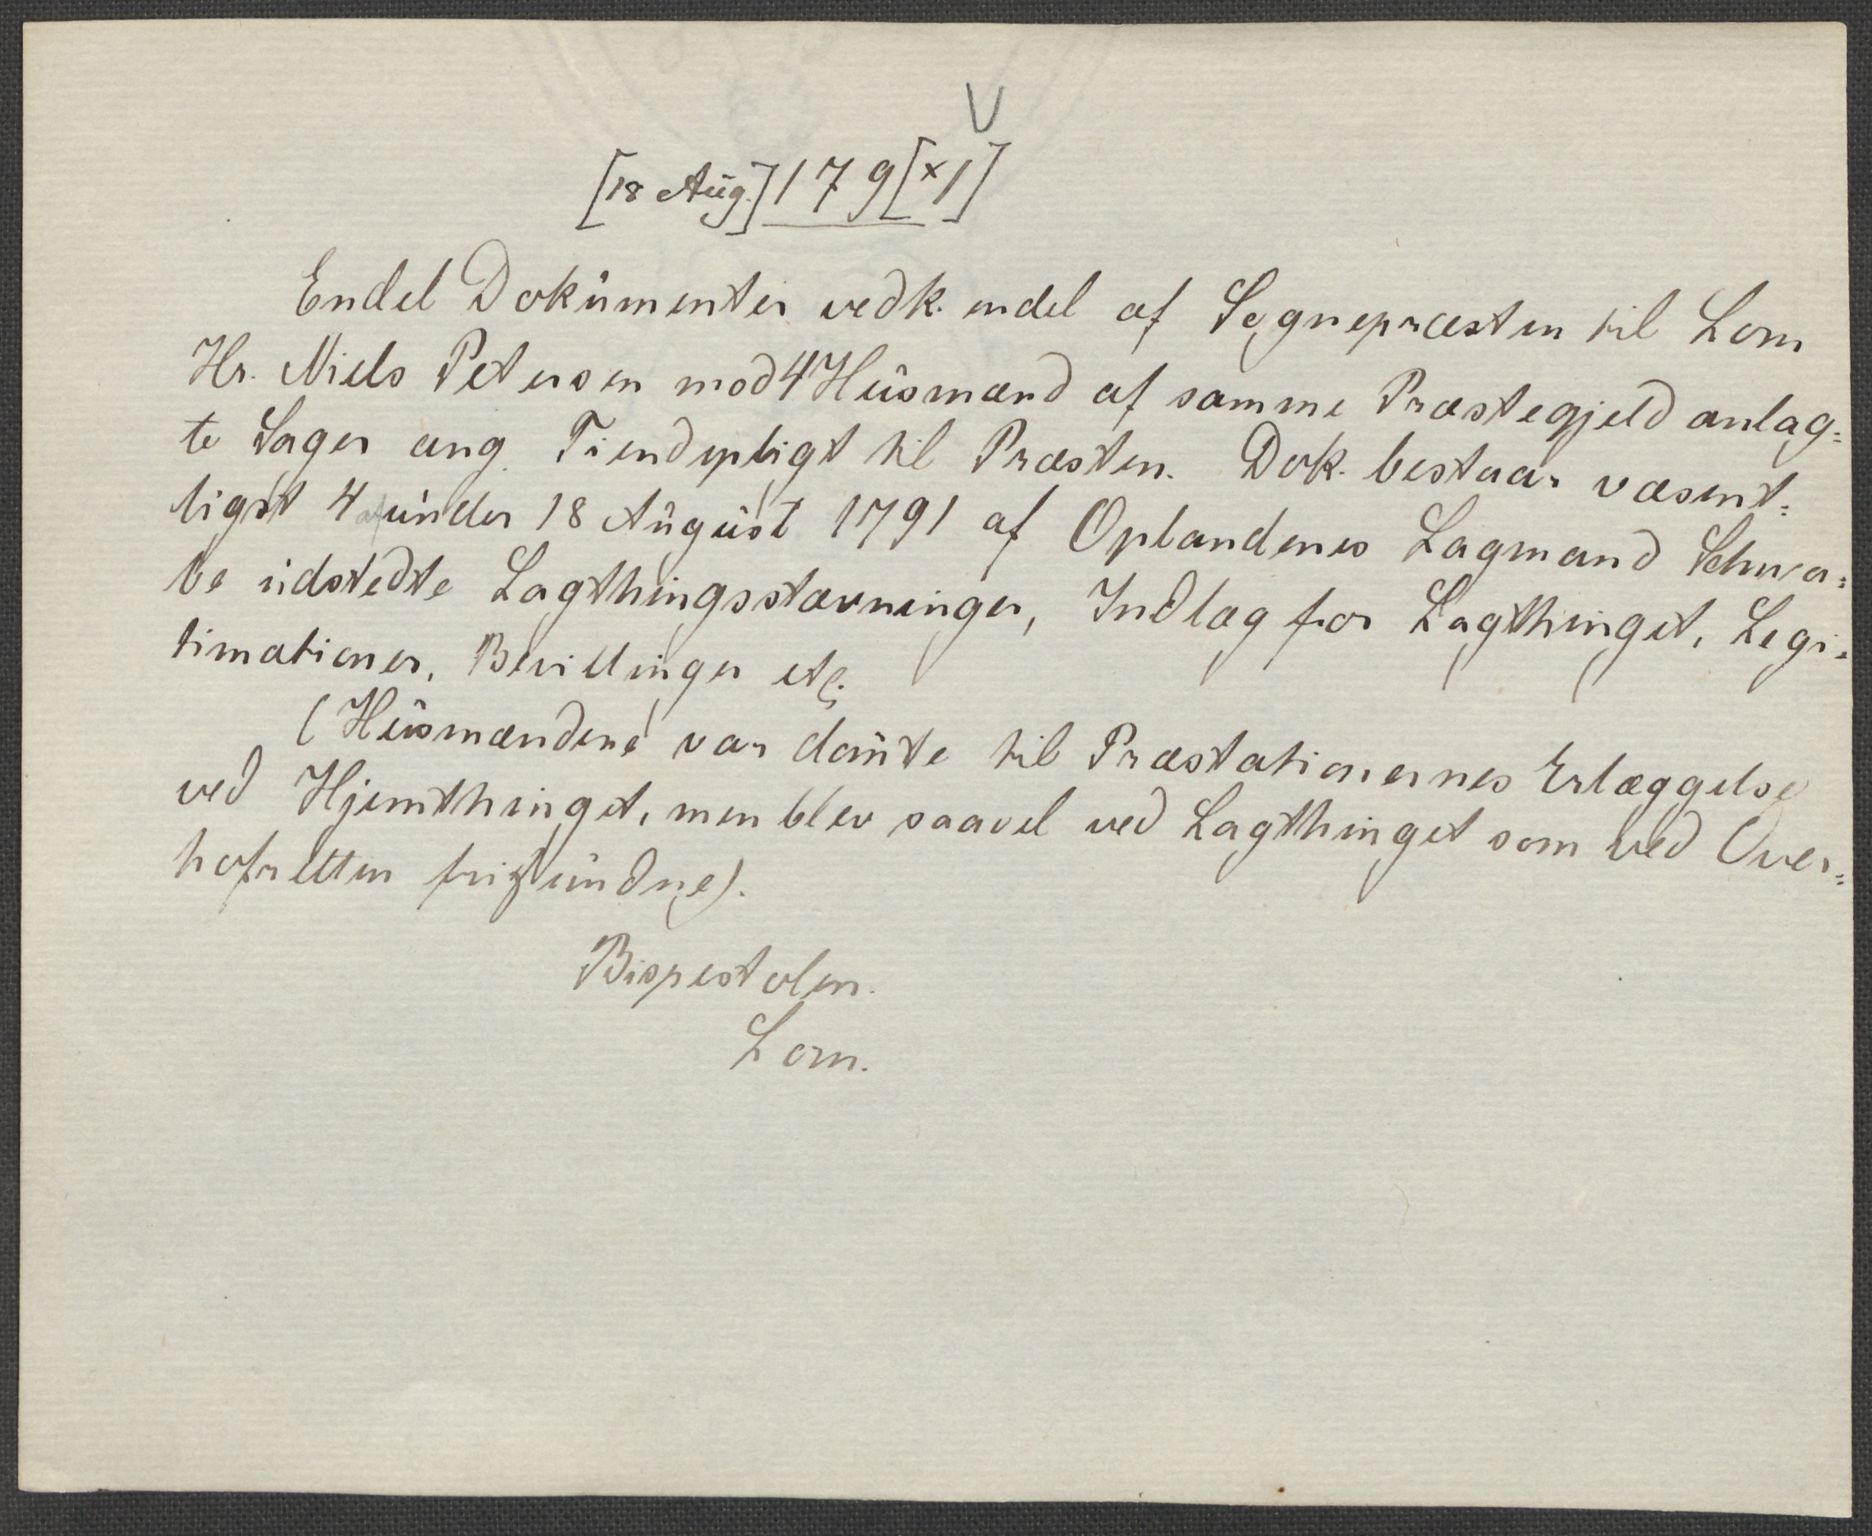 V
[18 Aug.] 179[x1]
Endel Dokumenter vedk. endel af Sognepræsten til Lom
Hr. Niels Petersen mod 4 Husmænd af samme Præstegjeld anlag=
te Sager ang. Tiendepligt til Præsten. Dok. bestaar væsent=
ligst 4 under 18 August 1791 af Oplandenes Lagmand Schwa=
be udstedte Lagthingsstævninger, Indlæg for Lagthinget, Legi=
timationer, Bevillinger etc.
(Husmændene var dømte til Præstationernes Erlæggelse
ved Hjemthinget, men blev saavel ved Lagthinget som ved Over=
hofretten frifundne).
Bispestolen.
Lom.